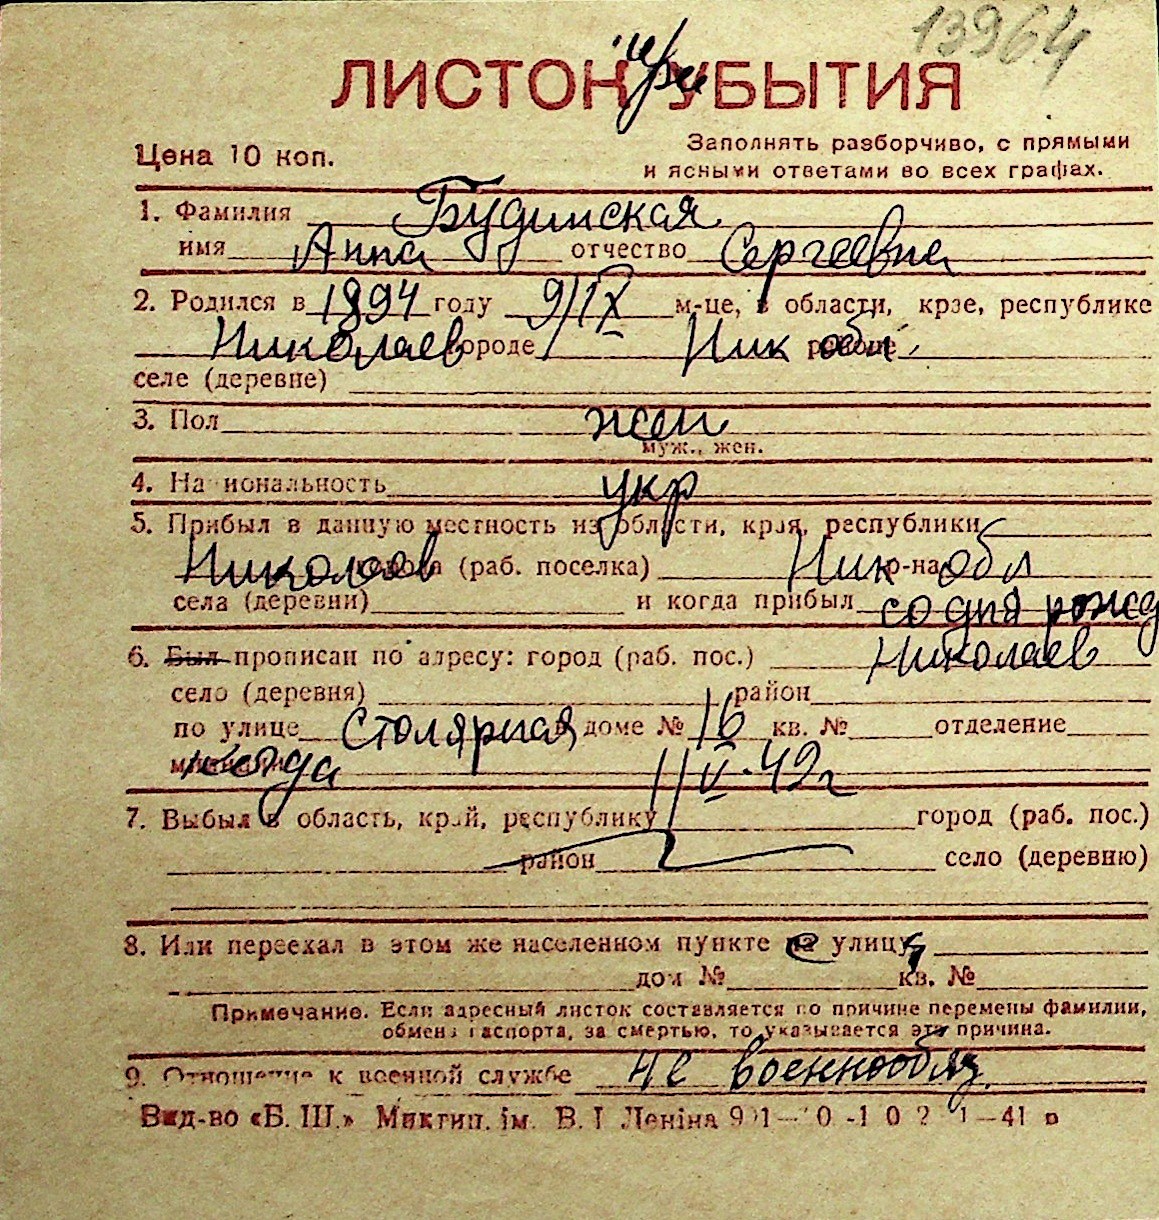 13964
ЛИСТОК при УБЫТИЯ
Цена 10 коп.
Заполнять разборчиво, с прямыми
и ясными ответами во всех графах.
1. Фамилия Будинская
имя Анна отчество Сергеевна
2. Родился в 1894 году 9/IX м-це, в области, крае, республике
Николаев городе Ник обл районе
селе (деревне)
3. Пол жен
муж., жен.
4. Национальность укр
5. Прибыл в данную местность из области, края, республики
Николаев города (раб. поселка) Ник обл р-на
села (деревни) и когда прибыл со дня рожд
6. Был прописан по адресу: город (раб. пос.) Николаев
село (деревня) район
по улице Столярная в доме № 16 кв. № отделение
милиции когда 11/V-42г
7. Выбыл в область, край, республику город (раб. пос.)
район село (деревню)
8. Или переехал в этом же населенном пункте с улицы
дом № кв. №
Примечание. Если адресный листок составляется по причине перемены фамилии,
обмена паспорта, за смертью, то указывается эта причина.
9. Отношение к военной службе не военнообяз.
Вид-во «Б. Ш.» Миктип. ім. В. І Леніна